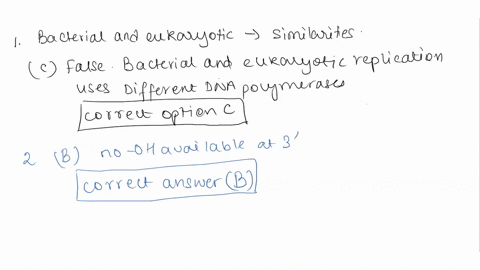 1. Bacterial and eukaryotic → similarites.
(c) False. Bacterial and eukaryotic replication
uses Different DNA polymerases
correct option C
2 (B) no -OH available at 3'
correct answer (B)